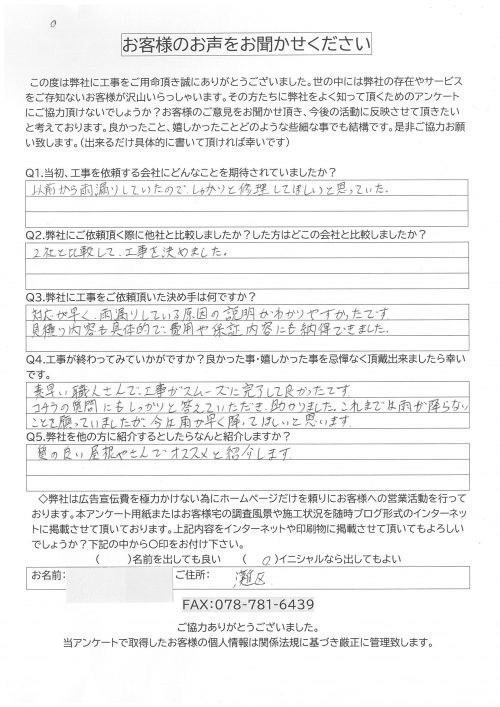 お客様のお声をお聞かせください
この度は弊社に工事をご用命頂き誠にありがとうございました。世の中には弊社の存在やサービス
をご存知ないお客様が沢山いらっしゃいます。その方たちに弊社をよく知って頂くためのアンケート
にご協力頂けないでしょうか？お客様のご意見をお聞かせ頂き、今後の活動に反映させて頂きたい
と考えております。良かったこと、嬉しかったことどのような些細な事でも結構です。是非ご協力お願
い致します。（出来るだけ具体的に書いて頂ければ幸いです）
Q1.当初、工事を依頼する会社にどんなことを期待されていましたか？
以前から雨漏りしていたので、しっかりと修理してほしいと思っていた。
Q2.弊社にご依頼頂く際に他社と比較しましたか？した方はどこの会社と比較しましたか？
2社と比較して、工事を決めました。
Q3.弊社に工事をご依頼頂いた決め手は何ですか？
対応が早く、雨漏りしている原因の説明がわかりやすかったです
見積り内容も具体的で、費用や保証内容にも納得できました。
Q4.工事が終わってみていかがですか？良かった事・嬉しかった事を忌憚なく頂戴出来ましたら幸い
です。
素早い職人さんで、工事がスムーズに完了して良かったです
コチラの質問にもしっかりと答えていただき、助かりました。これまでは雨が降らない
ことを願っていましたが、今は雨が早く降ってほしいと思います。
Q5.弊社を他の方に紹介するとしたらなんと紹介しますか？
質の良い屋根やさんで、オススメと紹介します
◇弊社は広告宣伝費を極力かけない為にホームページだけを頼りにお客様への営業活動を行って
おります。本アンケート用紙またはお客様宅の調査風景や施工状況を随時ブログ形式のインターネッ
トに掲載させて頂いております。上記内容をインターネットや印刷物に掲載させて頂いてもよろしい
でしょうか？下記の中から〇印をお付け下さい。
（　　）名前を出しても良い　（　0　）イニシャルなら出してもよい
お名前：　ご住所：　灘区
FAX：078-781-6439
ご協力ありがとうございました。
当アンケートで取得したお客様の個人情報は関係法規に基づき厳正に管理致します。